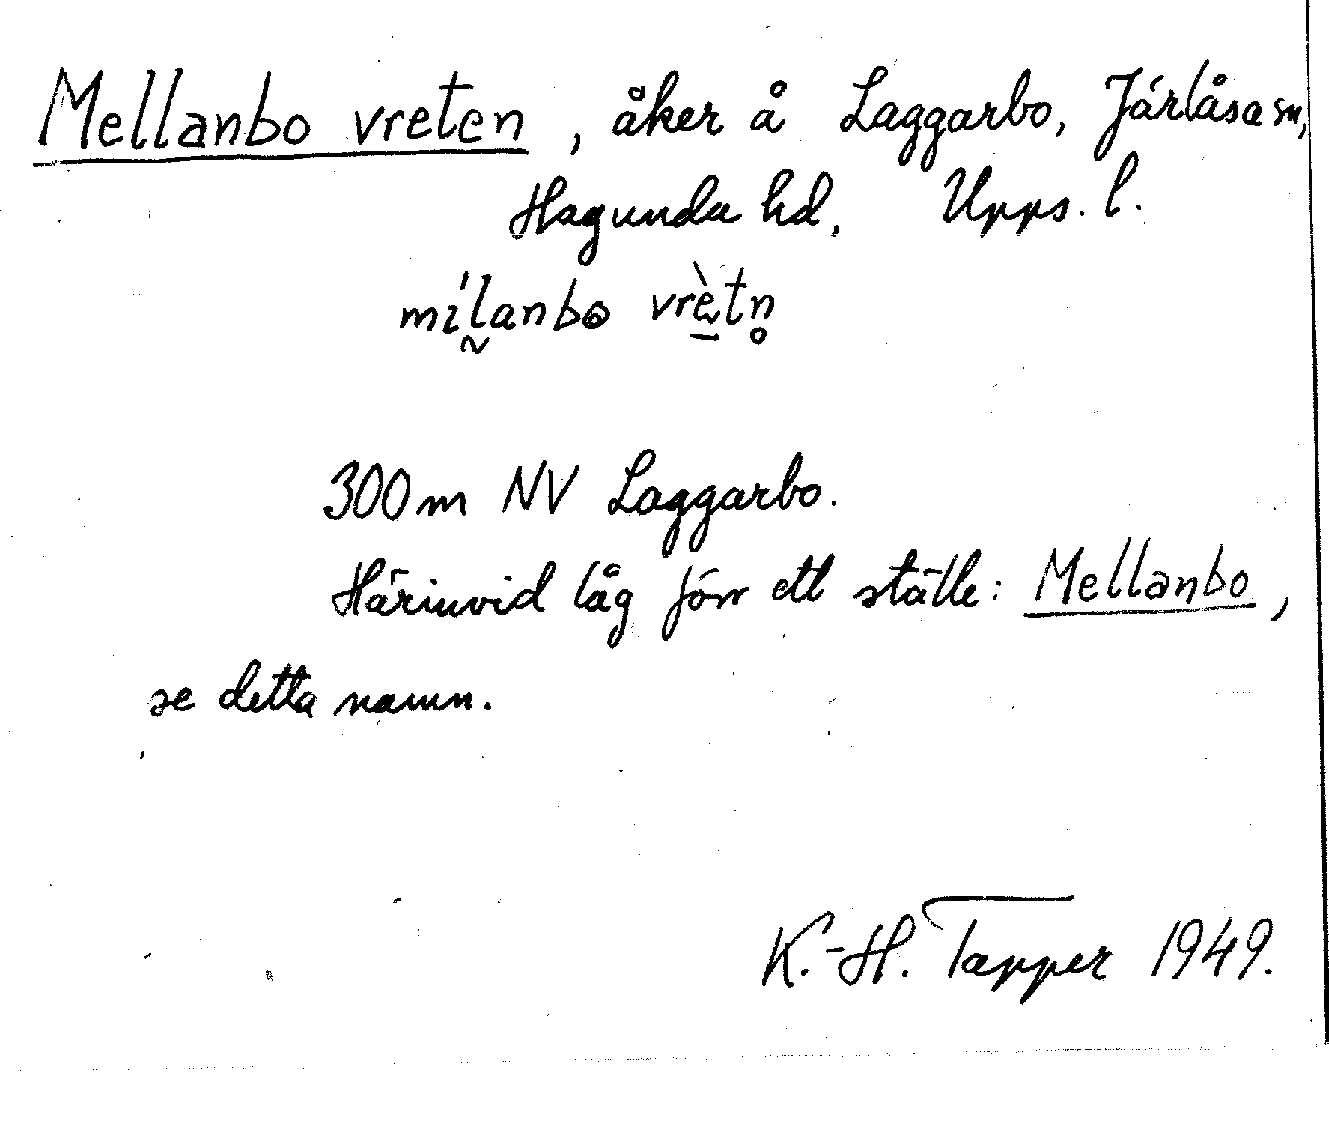 Mellanbo vreten, åker å Laggarbo, Järlåsa sn,
Hagunda hd, Upps. l.
300 m NV Laggarbo.
Härinvid låg förr ett ställe: Mellanbo,
se detta namn.
K.-H. Tapper 1949.